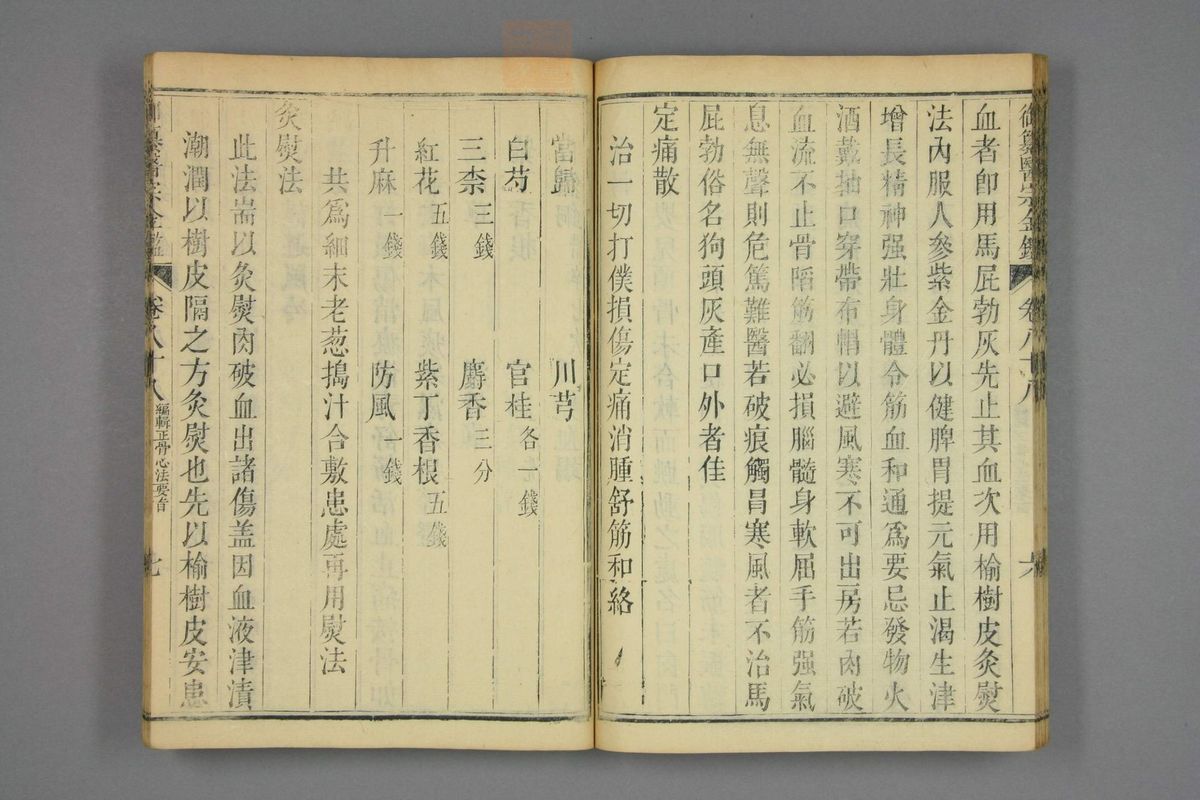 御纂醫宗金鑑 卷八十八 六
血者卽用馬屁勃灰先止其血次用榆樹皮灸熨
法內服人參紫金丹以健脾胃提元氣止渴生津
增長精神强壯身體令筋血和通爲要忌發物火
酒戴抽口穿帶布帽以避風寒不可出房若肉破
血流不止骨陷筋翻必損腦髓身軟屈手筋强氣
息無聲則危篤難醫若破痕觸冒寒風者不治馬
屁勃俗名狗頭灰產口外者佳
定痛散
治一切打僕損傷定痛消腫舒筋和絡
當歸 川芎
白芍 官桂各一錢
三柰三錢 麝香三分
紅花五錢 紫丁香根五錢
升麻一錢 防風一錢
共爲細末老葱搗汁合敷患處再用熨法
灸熨法
此法耑以灸熨肉破血出諸傷盖因血液津漬
潮潤以樹皮隔之方灸熨也先以榆樹皮安患
御纂醫宗金鑑 卷八十八 編輯正骨心法要旨 七